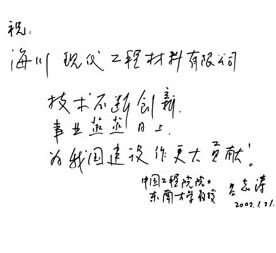 祝:
海川现代工程材料有限公司
技术不断创新
事业蒸蒸日上
为我国建设作更大贡献!
中国工程院院士
东南大学教授
吕志涛